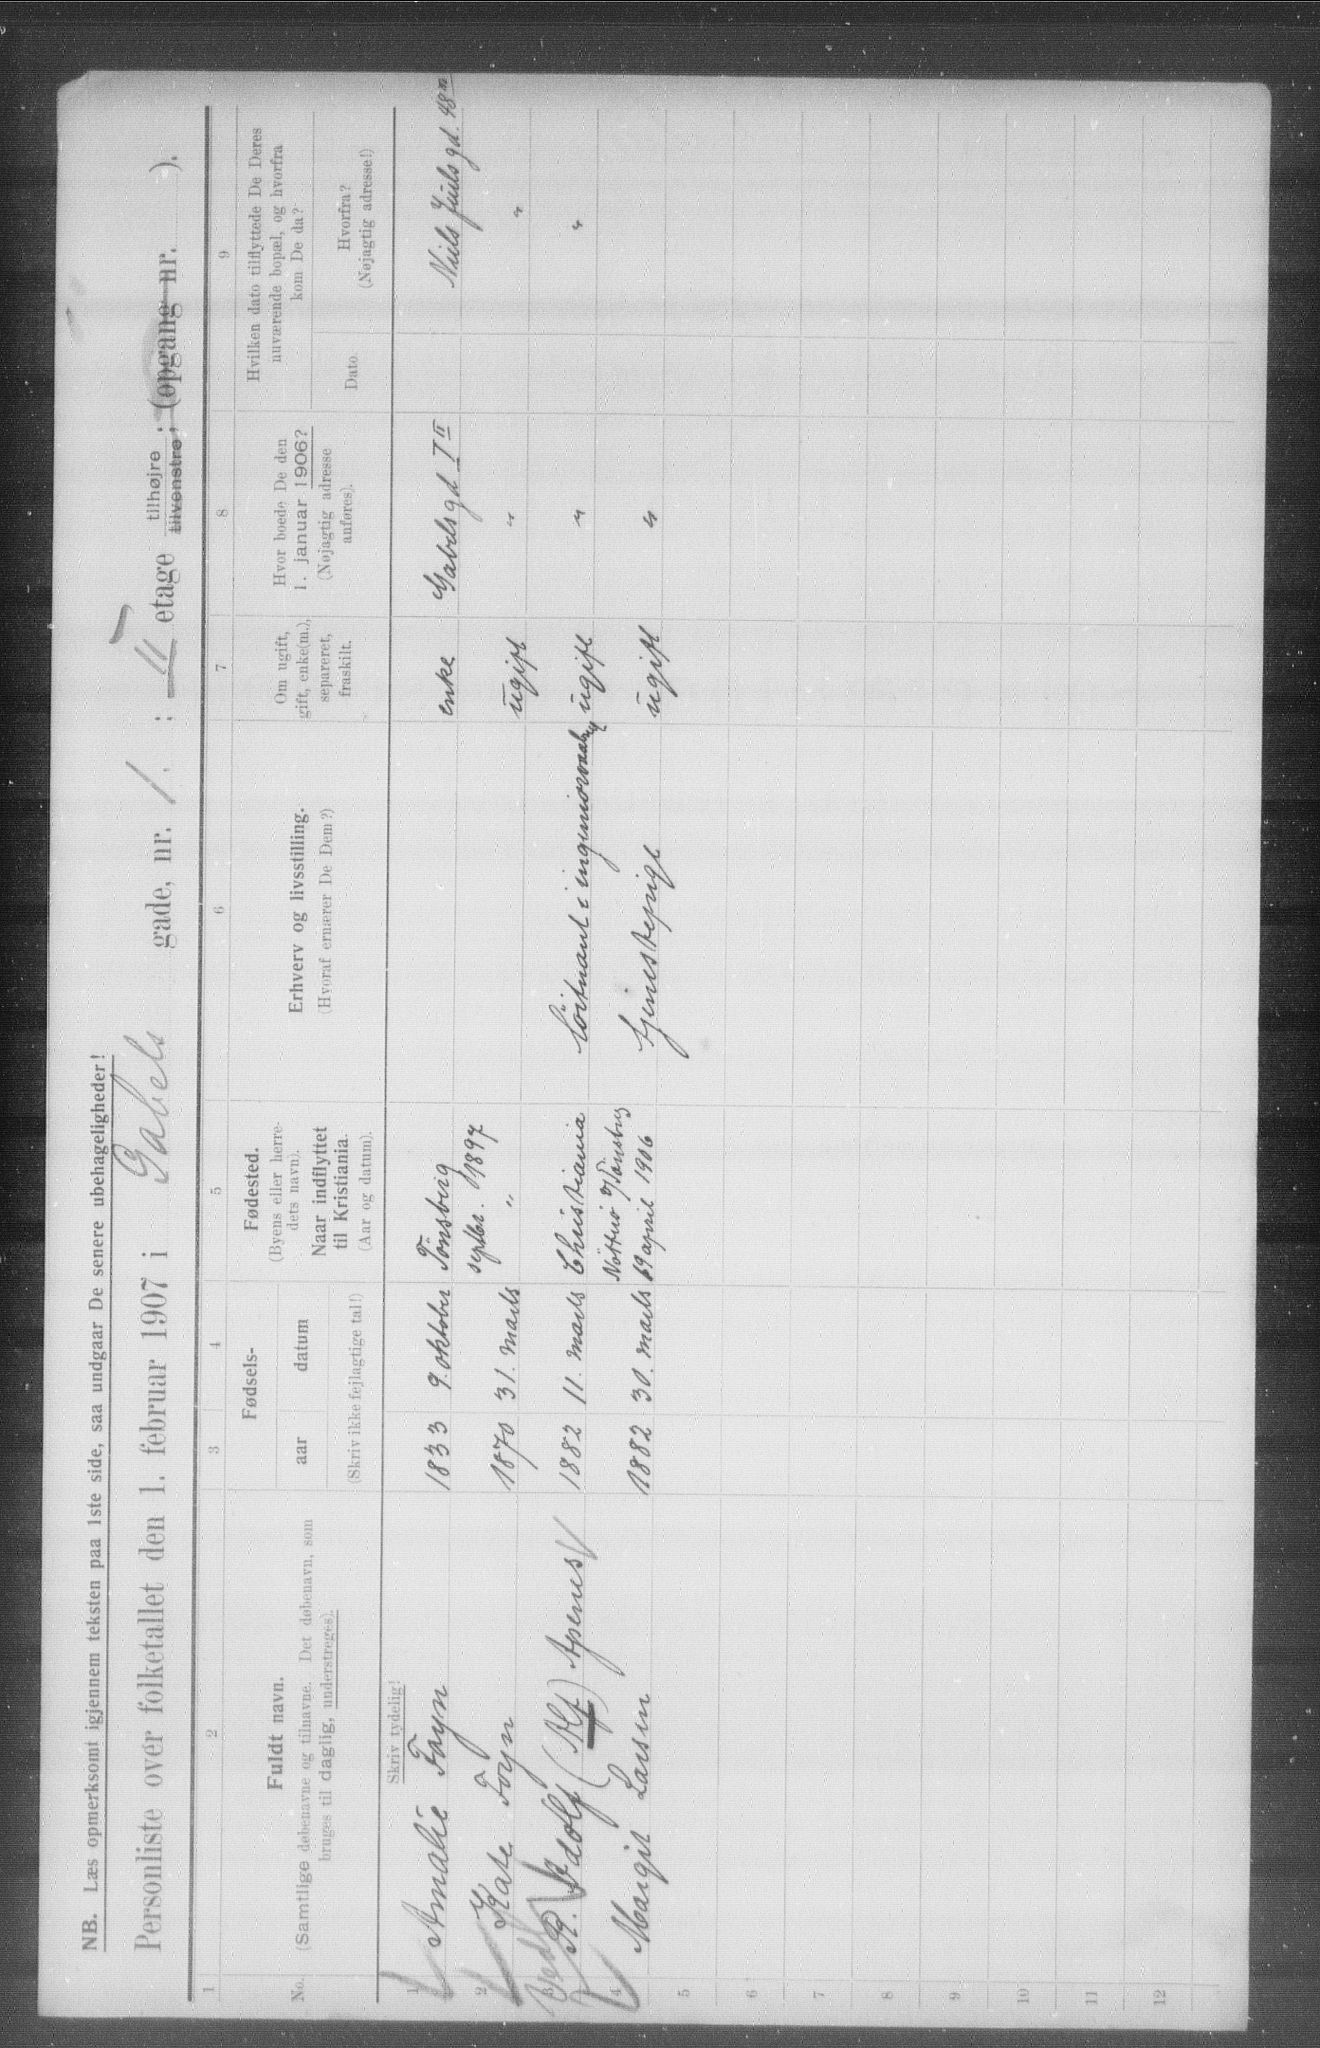 NB. Læs opmerksomt igjennem teksten paa 1ste side, saa undgaar De senere ubehageligheder!
Personliste over folketallet den 1. februar 1907 i Gabels gade, nr. 1. : II etage tilhøjre / tilvenstre; (opgang nr. ).
1 2 3 4 5 6 7 8 9
No.
Fuldt navn.
(Samtlige døbenavne og tilnavne. Det døbenavn, som
bruges til daglig, understreges).
Fødsels-
aar datum
(Skriv ikke fejlagtige tal!)
Fødested.
(Byens eller herre-
dets navn).
Naar indflyttet
til Kristiania.
(Aar og datum).
Erhverv og livsstilling.
(Hvoraf ernærer De Dem?)
Om ugift,
gift, enke(m.),
separeret,
fraskilt.
Hvor boede De den
1. januar 1906?
(Nøjagtig adresse
anføres).
Hvilken dato tilflyttede De Deres
nuværende bopæl, og hvorfra
kom De da?
Dato.
Hvorfra?
(Nøjagtig adresse!)
Skriv tydelig!
1 Amalie Foyn 1833 9. oktober Tönsberg enke Gabels gd 1 II Niels Juels gd. 48
septbr. 1897
2 Kate Foyn 1870 31. marts " ugift " "
3 A. Adolf (Alf) Apenes 1882 11. marts Christiania löitnant i ingeniørvaabnet ugift " "
Nötterö v/Tönsberg
4 Margit Larsen 1882 30. marts 19 april 1906 tjenestepige ugift "
5
6
7
8
9
10
11
12